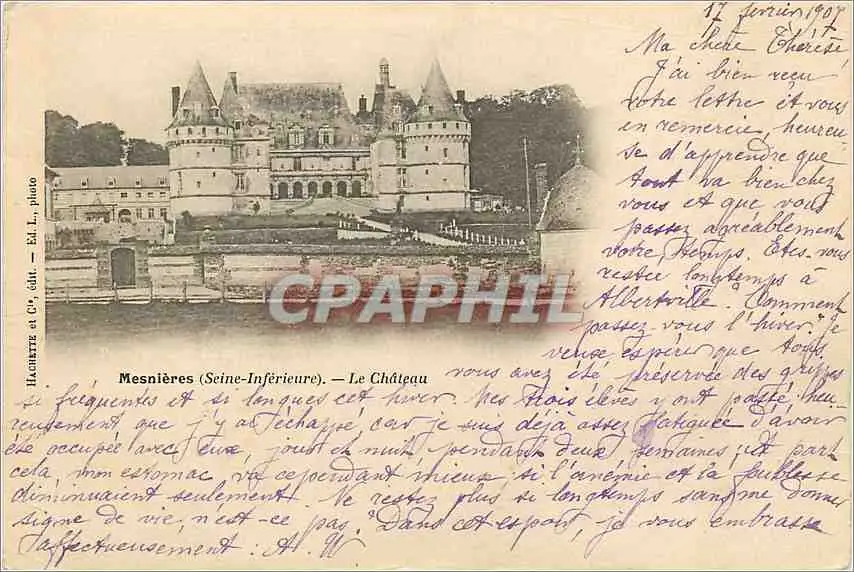 17 février 1907
Ma chère Thérèse
J'ai bien reçu
votre lettre et vous
en remercie, heureu
se d'apprendre que
tout va bien chez
vous et que vous
passez agréablement
votre temps. Etes-vous
restée longtemps à
Albertville? Comment
passez-vous l'hiver? Je
veux espérer que tous
vous avez été préservée des grippes
si fréquentes et si longues cet hiver. Mes trois élèves y ont passé, heu-
reusement que j'y ai échappé, car je suis déjà assez fatiguée d'avoir
été occupée avec eux, jour et nuit, pendant deux semaines; à part
cela, mon estomac va cependant mieux si l'anémie et la faiblesse
diminuaient seulement. Ne restez plus si longtemps sans me donner
signe de vie, n'est-ce pas? Dans cet espoir, je vous embrasse
affectueusement: A. W
Mesnières (Seine-Inférieure). — Le Château
HACHETTE et Cie, édit. — Ed. L., photo
CPAPHIL